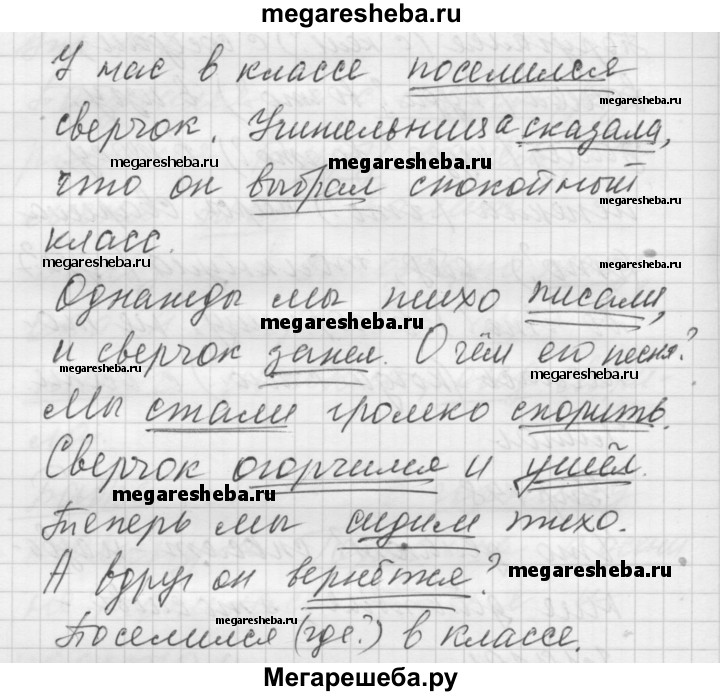 megaresheba.ru
У нас в классе поселился
megaresheba.ru
сверчок. Учительница сказала,
megaresheba.ru megaresheba.ru
что он выбрал спокойный
megaresheba.ru
класс.
megaresheba.ru
Однажды мы тихо писали,
megaresheba.ru megaresheba.ru
и сверчок запел. О чём его песня?
megaresheba.ru megaresheba.ru
Мы стали громко спорить.
megaresheba.ru
Сверчок огорчился и ушёл.
megaresheba.ru
Теперь мы сидим тихо.
А вдруг он вернётся? megaresheba.ru
Поселился (где?) в классе.
megaresheba.ru
Мегарешеба.ру